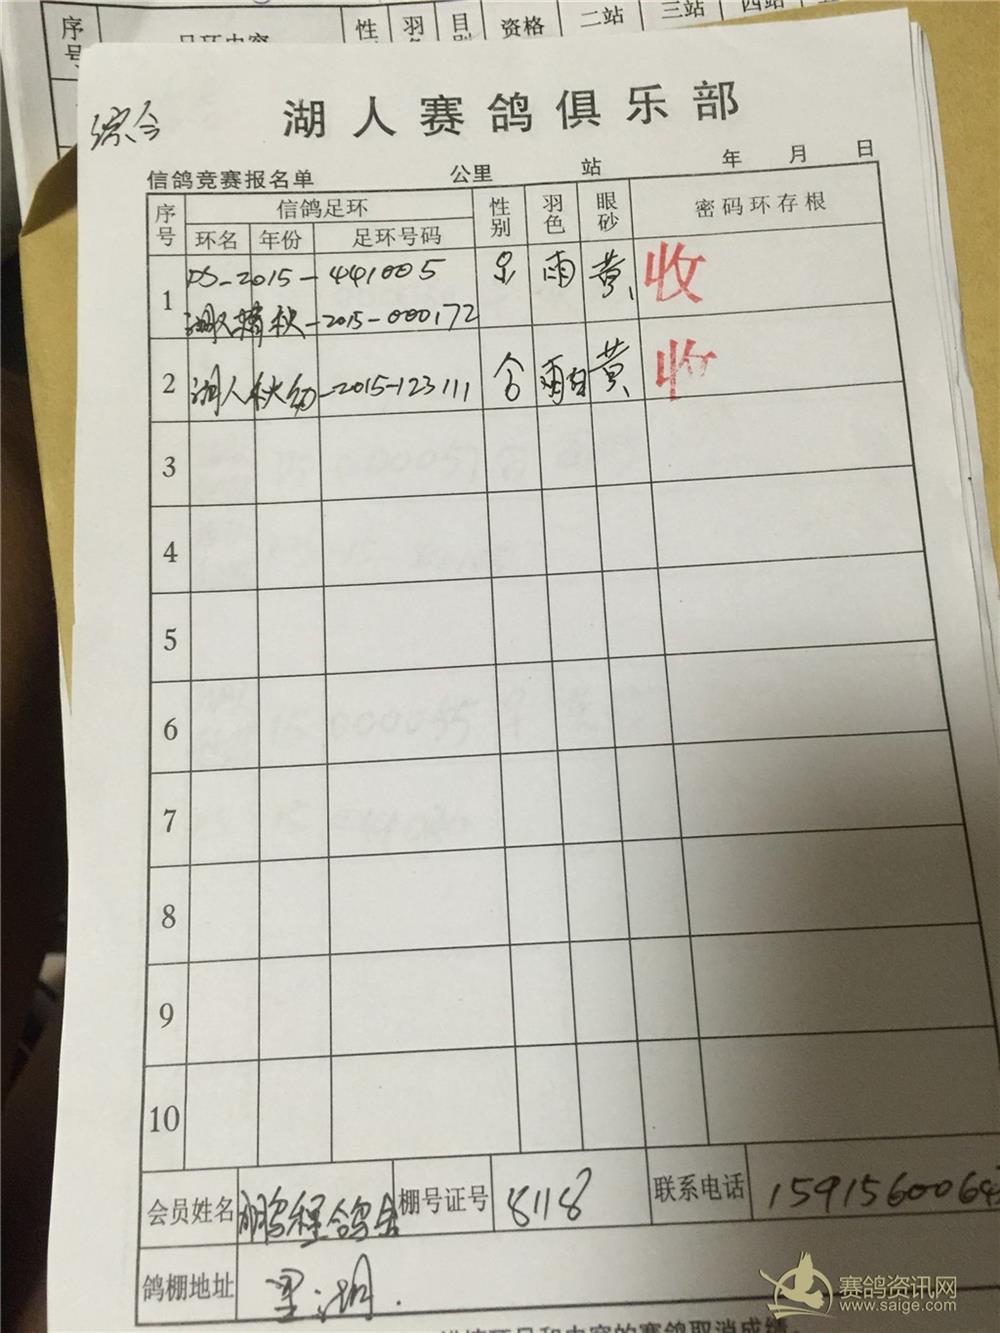 序号 性 羽 目 资格 二站 三站 四站
综合
湖人赛鸽俱乐部
信鸽竞赛报名单 公里 站 年 月 日
序号 信鸽足环 性别 羽色 眼砂 密码环存根
环名 年份 足环号码
1 PS-2015-441005 雨 黄 收
-2015-000172
2 湖人秋幼-2015-123111 雨白 黄 收
3
4
5
6
7
8
9
10
会员姓名 鹏程鸽舍 棚号证号 8118 联系电话 1591560064
鸽棚地址 里湖.
赛鸽资讯网
www.saige.com